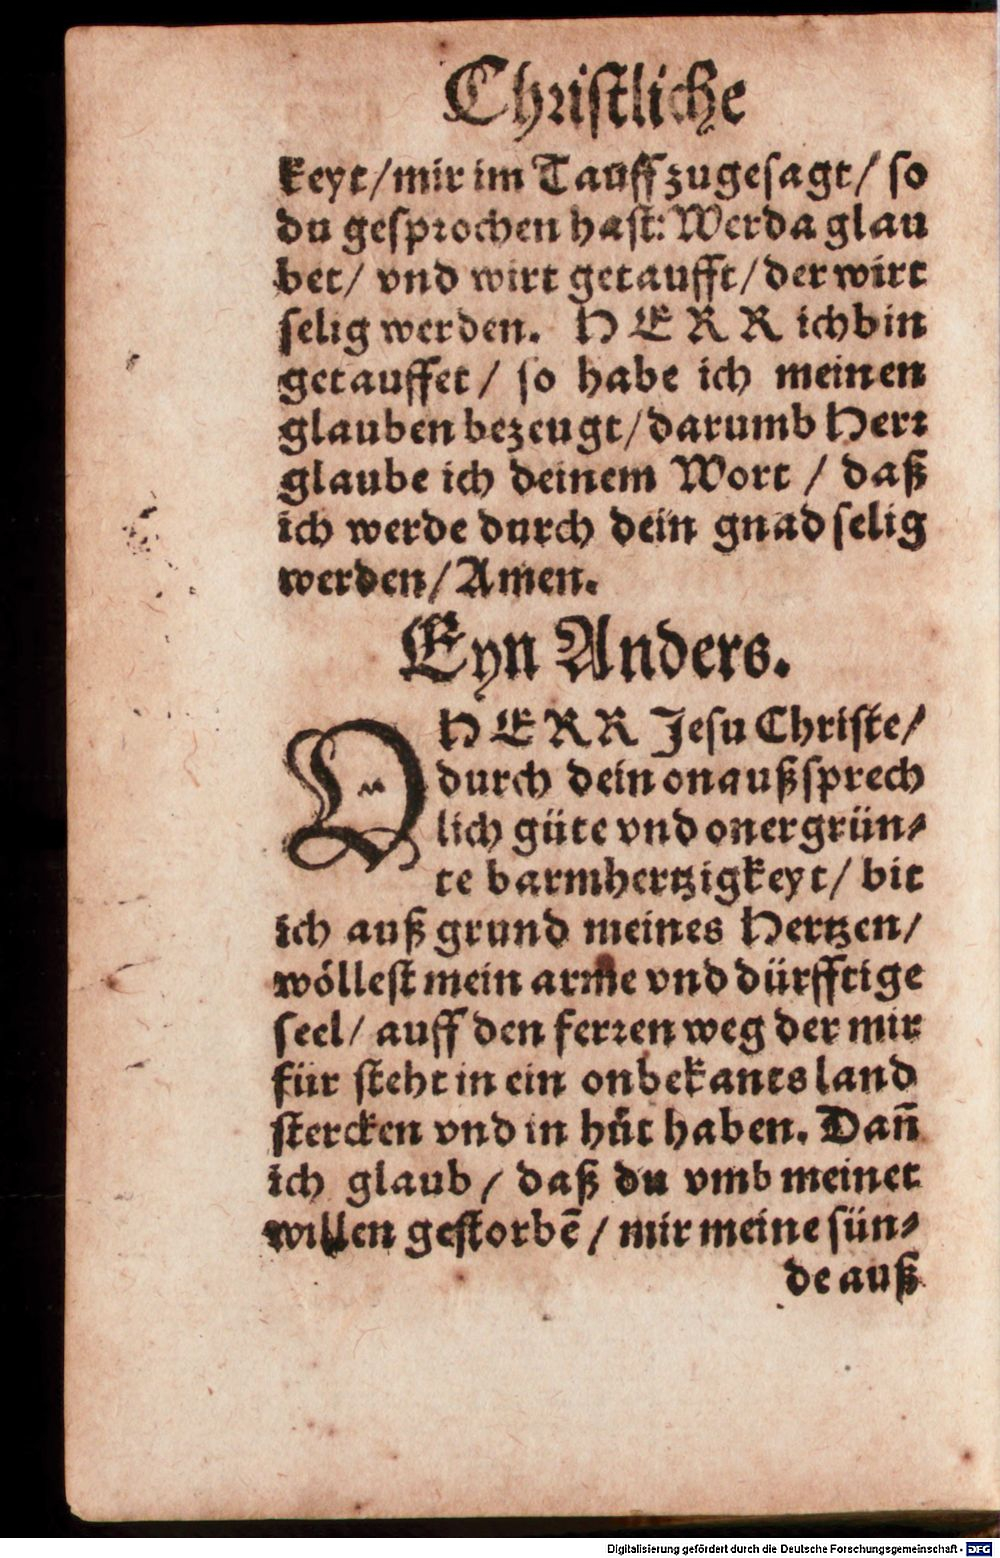 Christliche
keyt/mir im Tauff zugesagt/ so
du gesprochen hast: Wer da glau
bet/ vnd wirt getaufft/der wirt
selig werden. HERR ich bin
getauffet/ so habe ich meinen
glauben bezeugt/darumb Herr
glaube ich deinem Wort / daß
ich werde durch dein gnad selig
werden/Amen.
Eyn Anders.
O HERR Jesu Christe/
durch dein onaußsprech
lich güte vnd onergrün-
te barmhertzigkeyt/ bit
ich auß grund meines Hertzen/
wöllest mein arme vnd dürfftige
seel/ auff den ferren weg der mir
für steht in ein onbekants land
stercken vnd in hůt haben. Dañ
ich glaub/ daß du vmb meinet
willen gestorbē/ mir meine sün-
de auß
Digitalisierung gefördert durch die Deutsche Forschungsgemeinschaft - DFG